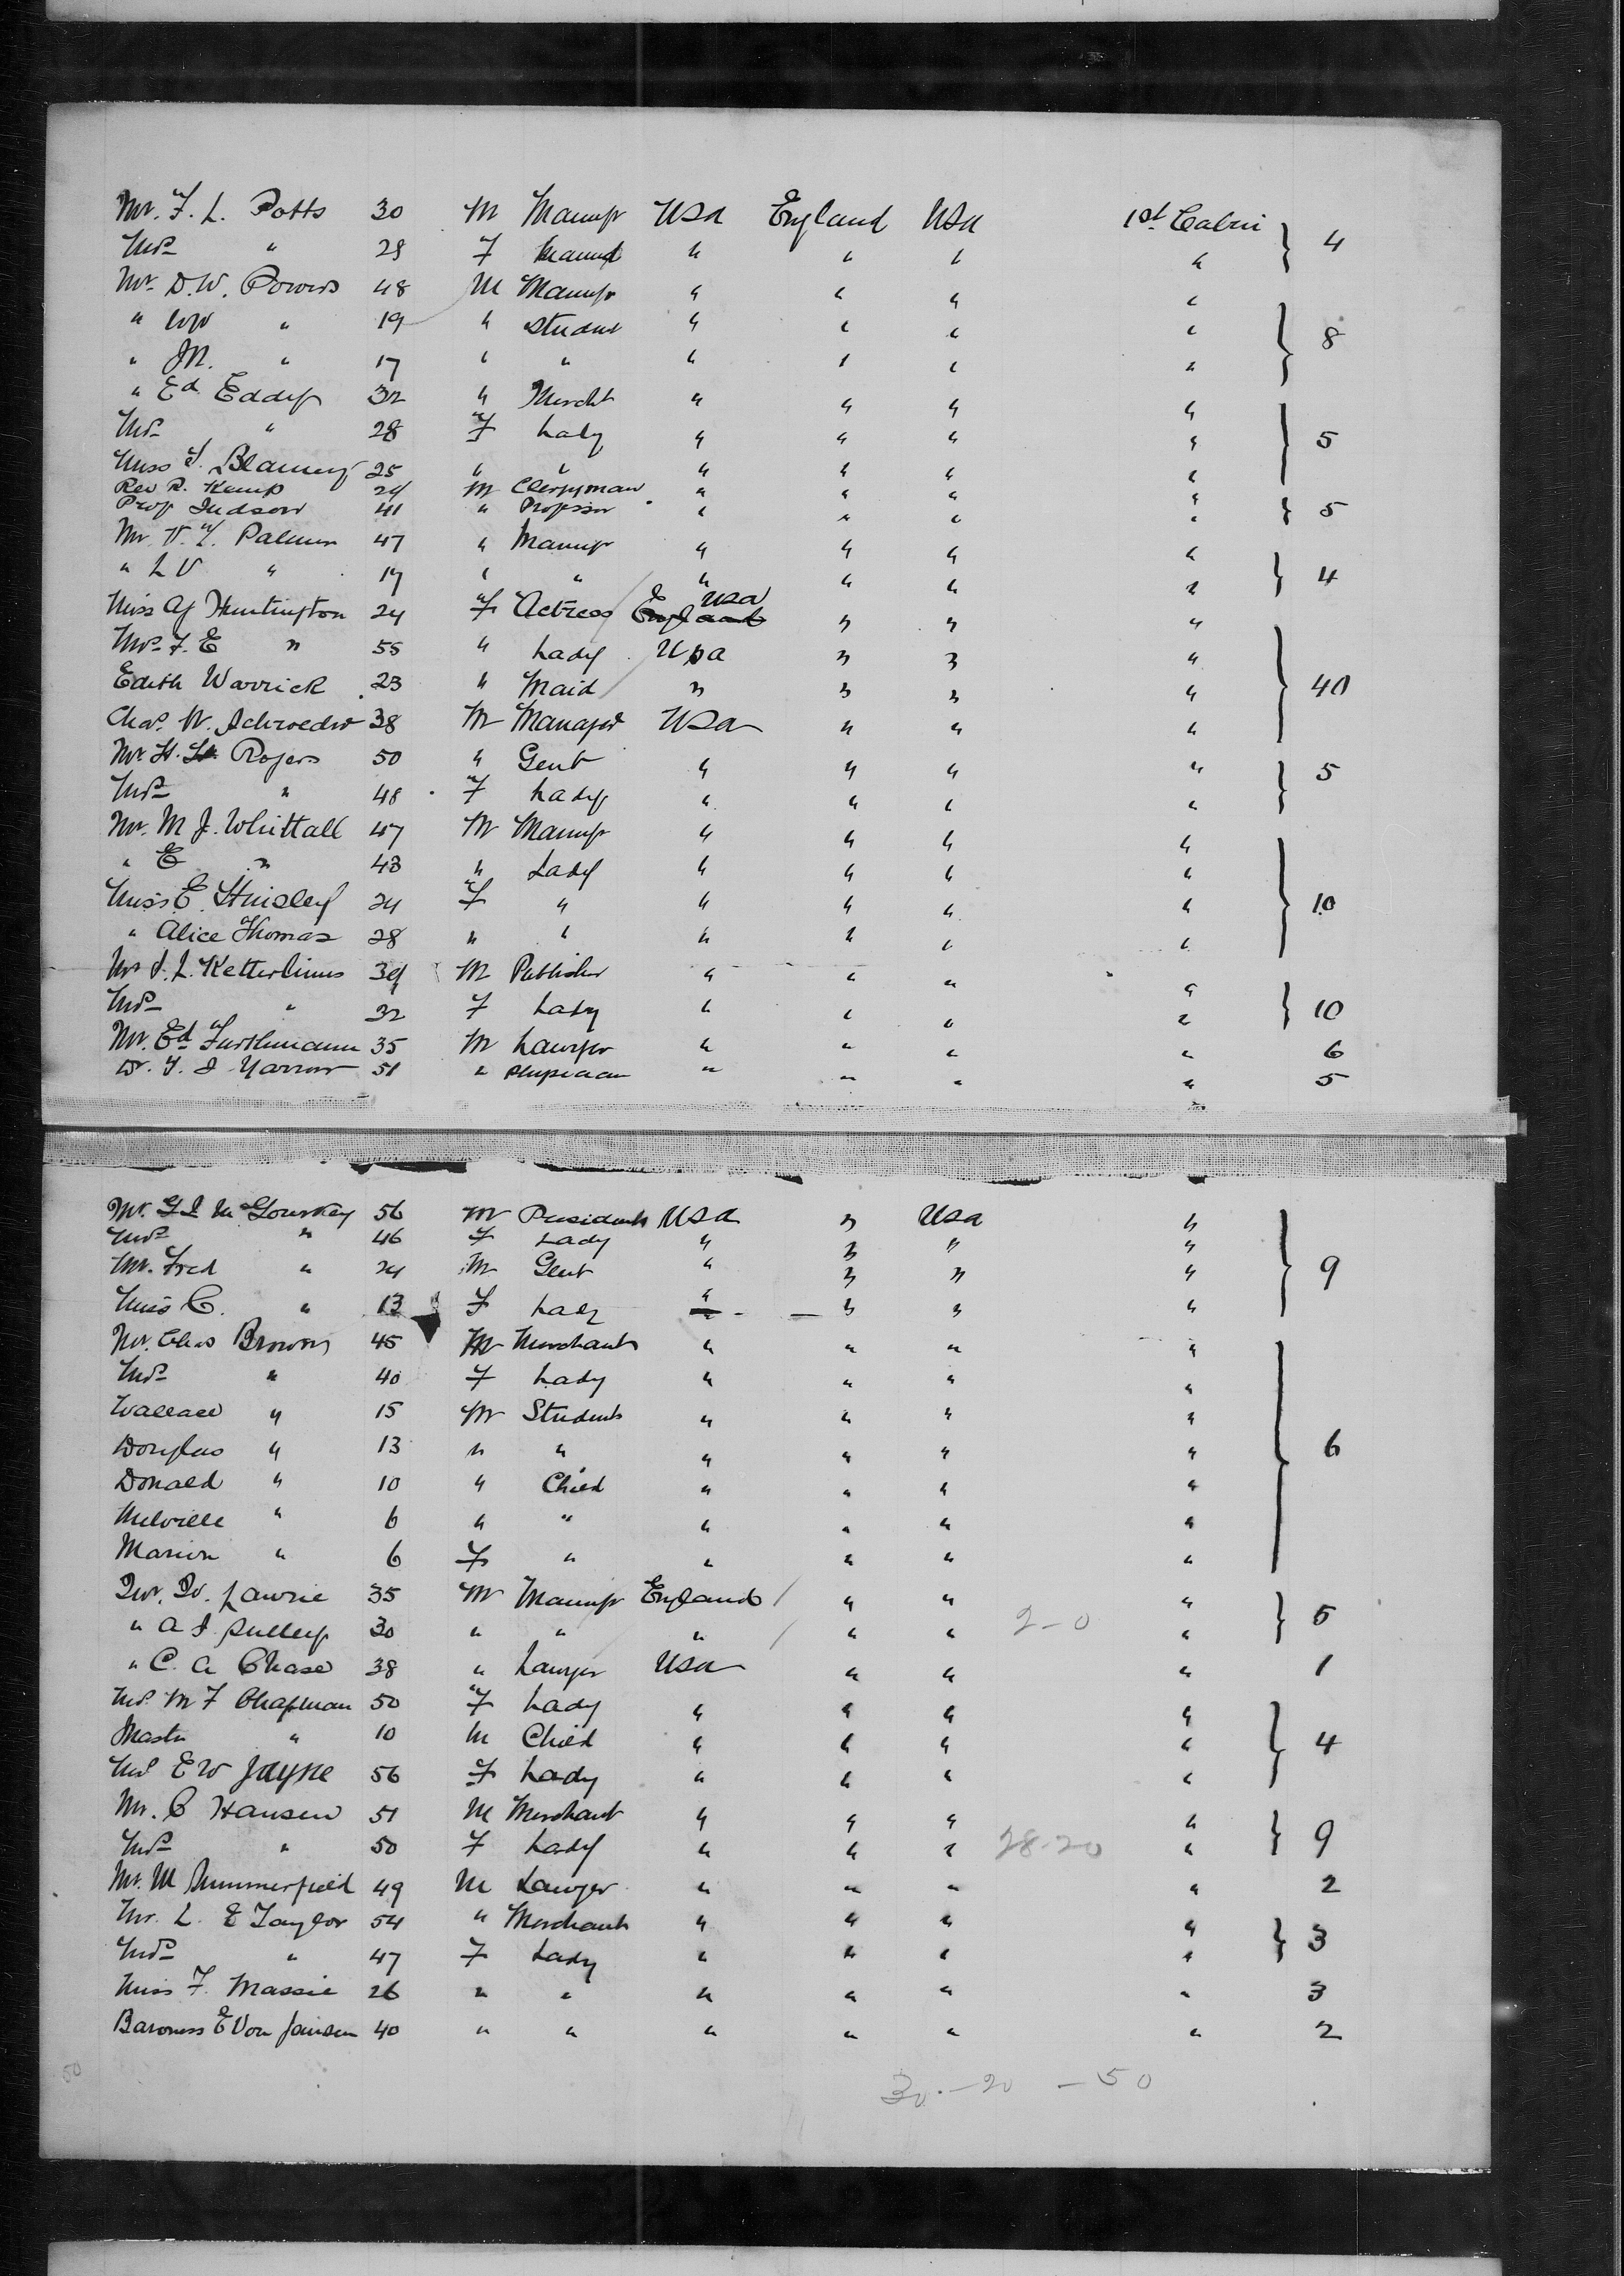 Mr. F. L. Potts 30 M Manufr USA England USA 1st Cabin 4
Mrs " 28 F " " " "
Mr. D. W. Powers 48 M Manufr " " " "
" WW " 19 " Student " " " " 8
" JM. " 17 " " " " " "
" Ed Eddy 32 " Mercht " " " "
Mrs " 28 F Lady " " " " 5
Miss Blamey 25 " " " " " "
Rev R. Kemp 24 M Clergyman " " " "
Prof Judson 41 " Professor " " " " 5
Mr. Palmer 47 " Manufr " " " "
" L V " 19 " " " " " " 4
Miss Ag Huntington 24 F Actress England USA " " "
Mrs F. E " 55 " Lady USA " " "
Edith Warrick 23 " Maid " " " " 40
Chas. W. Schroeder 38 M Manager USA " " "
Mr H. Rogers 50 " Gent " " " " 5
Mrs " 48 F Lady " " " "
Mr. M J. Whittall 47 M Manufr " " " "
" E " 43 " Lady " " " "
Miss E. 24 F " " " " " 10
" Alice Thomas 28 " " " " " "
Mr J. L. Ketterlinus 39 M Publisher " " " "
Mrs " 32 F Lady " " " " 10
Mr. Ed Furthmann 35 M Lawyer " " " " 6
Dr. Yarrow 51 " Physician " " " " 5
Mr. McGourkey 56 M President USA " USA "
Mrs " 46 F Lady " " " "
Mr. Fred " 24 M Gent " " " " 9
Miss C. " 13 F Lady " " " "
Mr. Chas Brown 45 M Merchant " " " "
Mrs " 40 F Lady " " " "
Wallace " 15 M Student " " " "
Douglas " 13 " " " " " " 6
Donald " 10 " Child " " " "
Melville " 6 " " " " " "
Marion " 6 F " " " " "
Mr. W. Lawrie 35 M Manufr England " " "
" A J Pulley 30 " " " " " 2-0 " 5
" C. A Chase 38 " Lawyer USA " " " 1
Mrs. M F Chapman 50 F Lady " " " "
Master " 10 M Child " " " " 4
Mrs E W Jayne 56 F Lady " " " "
Mr. C Hansen 51 M Merchant " " " "
Mrs " 50 F Lady " " " 28-20 " 9
Mr. M Summerfield 49 M Lawyer " " " " 2
Mr. L. E Taylor 54 " Merchant " " " " 3
Mrs " 47 F Lady " " " "
Miss F. Massie 26 " " " " " " 3
Baroness E Von Jansen 40 " " " " " " 2
50
30-20-50